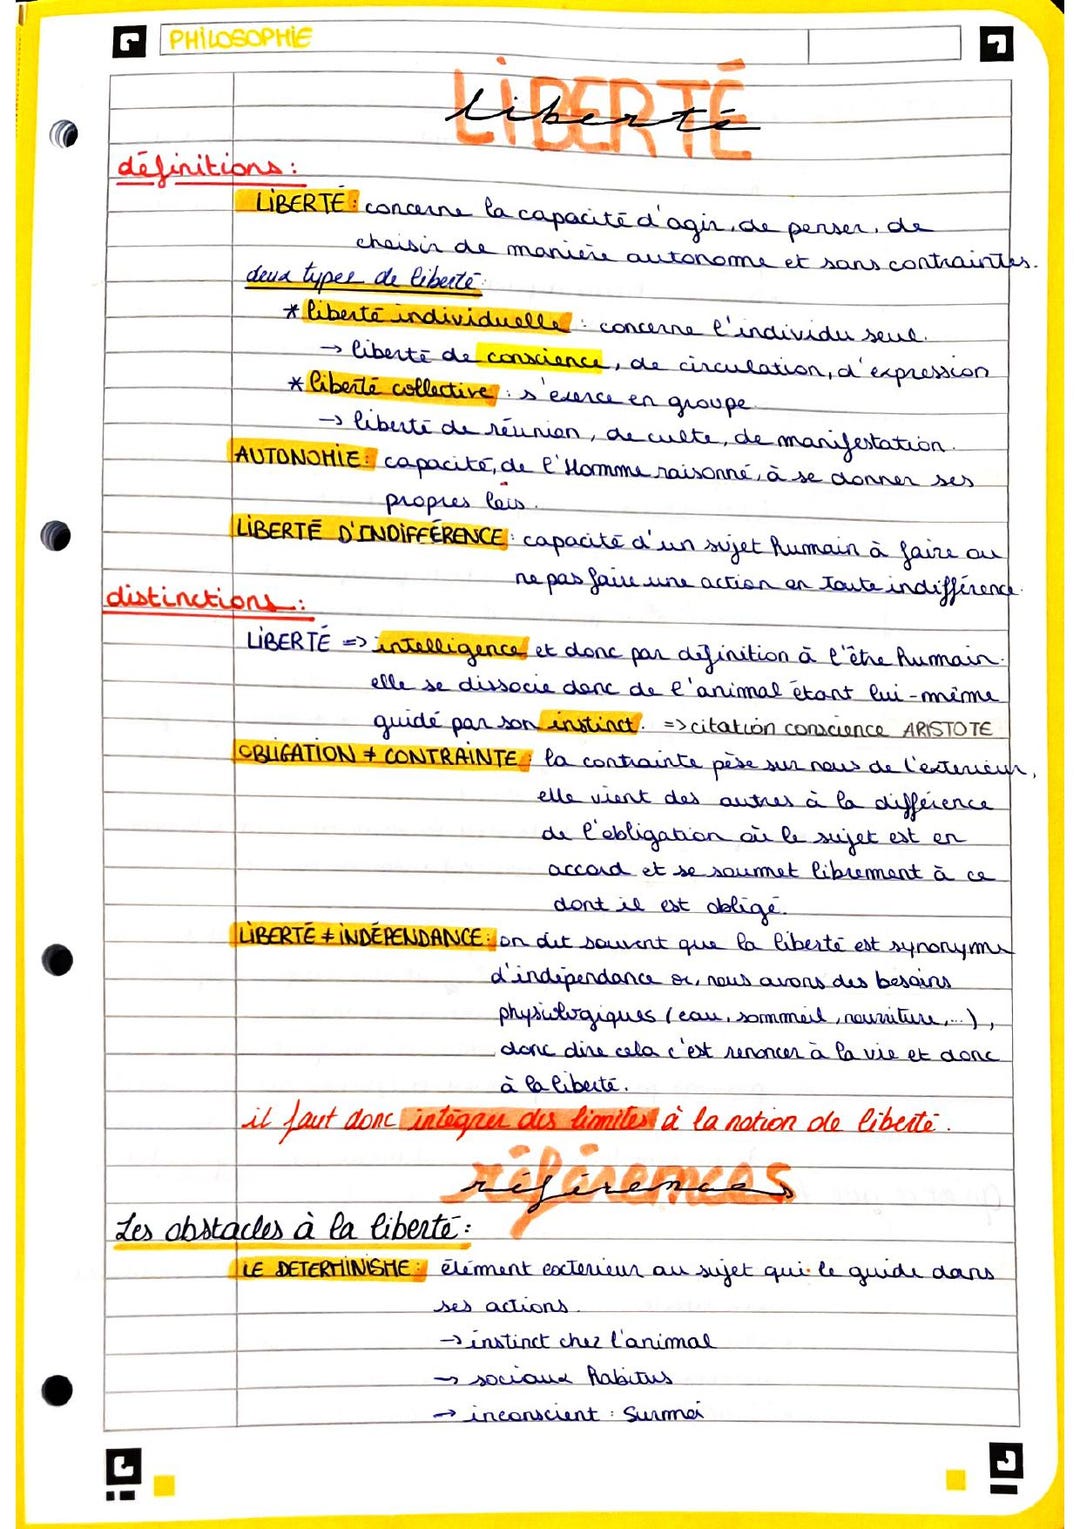 PHILOSOPHIE
LIBERTÉ
liberté
définitions :
LIBERTÉ : concerne la capacité d'agir, de penser, de
choisir de manière autonome et sans contraintes.
deux types de liberté :
* liberté individuelle : concerne l'individu seul.
→ liberté de conscience, de circulation, d'expression
* liberté collective : s'exerce en groupe.
→ liberté de réunion, de culte, de manifestation.
AUTONOMIE : capacité, de l'Homme raisonné, à se donner ses
propres lois.
LIBERTÉ D'INDIFFÉRENCE : capacité d'un sujet humain à faire ou
ne pas faire une action en toute indifférence.
distinctions :
LIBERTÉ => intelligence et donc par définition à l'être humain.
elle se dissocie donc de l'animal étant lui-même
guidé par son instinct. => citation conscience ARISTOTE
OBLIGATION ≠ CONTRAINTE : la contrainte pèse sur nous de l'exterieur,
elle vient des autres à la différence
de l'obligation où le sujet est en
accord et se soumet librement à ce
dont il est obligé.
LIBERTÉ ≠ INDÉPENDANCE : on dit souvent que la liberté est synonyme
d'indépendance or, nous avons des besoins
physiologiques (eau, sommeil, nourriture,...),
donc dire cela c'est renoncer à la vie et donc
à la liberté.
il faut donc intégrer des limites à la notion de liberté.
références
références
Les obstacles à la liberté :
LE DETERMINISME : élément exterieur au sujet qui le guide dans
ses actions.
→ instinct chez l'animal
→ sociaux habitus
→ inconscient : Surmoi